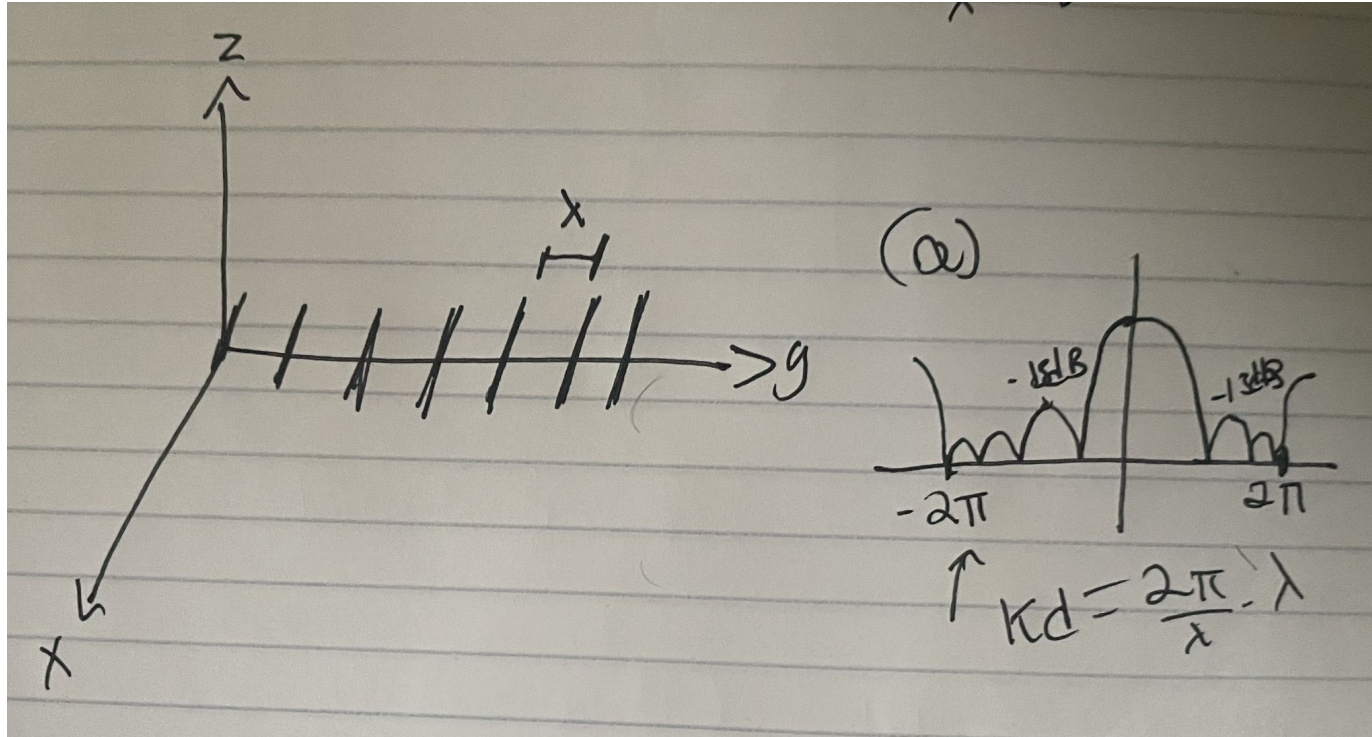 z
λ
y
x
(a)
-13dB
-13dB
-2π
2π
↑ Kd = 2π/λ · λ